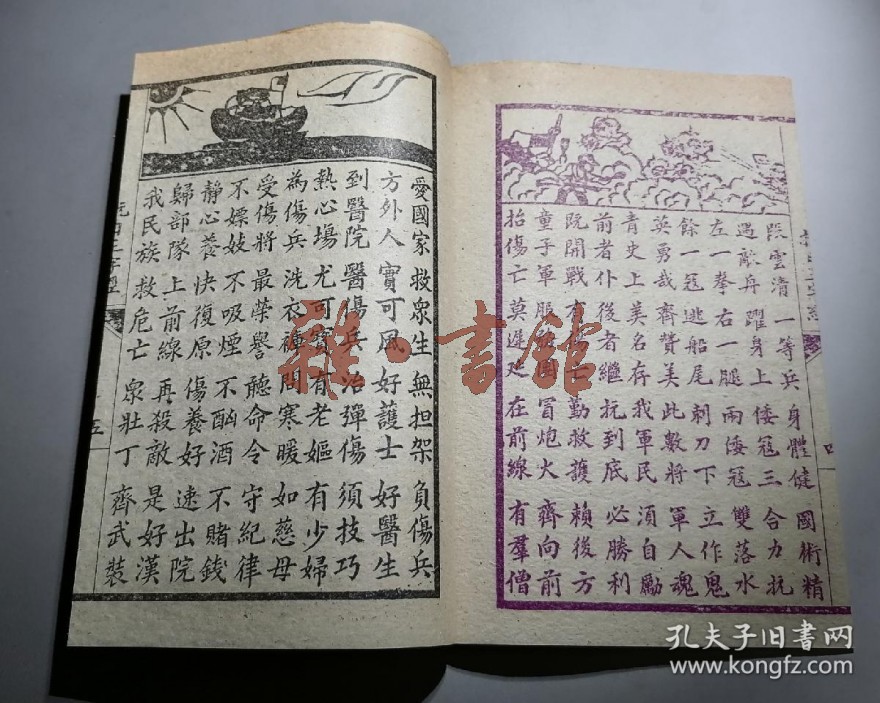 抗日三字經 四
段雲清 一等兵 身體健 國術精
遇敵舟 躍身上 倭寇三 合力抗
左一拳 右一腿 兩倭寇 雙落水
餘一寇 逃船尾 刺刀下 立作鬼
英勇哉 齊贊美 此數將 軍人魂
青史上 美名存 我軍民 須自勵
前者仆 後者繼 抗到底 必勝利
既開戰 有傷亡 勤救護 賴後方
童子軍 服務團 冒炮火 齊向前
抬傷亡 莫遲延 在前線 有羣僧
愛國家 救眾生 無担架 負傷兵
方外人 實可風 好護士 好醫生
到醫院 醫傷兵 治彈傷 須技巧
熱心場 尤可寶 有老嫗 有少婦
為傷兵 洗衣褲 問寒暖 如慈母
受傷將 最榮譽 聽命令 守紀律
不嫖妓 不吸煙 不酗酒 不賭錢
靜心養 快復原 傷養好 速出院
歸部隊 上前線 再殺敵 是好漢
我民族 救危亡 眾壯丁 齊武裝
抗日三字經 五
雜·書館
孔夫子旧书网
www.kongfz.com